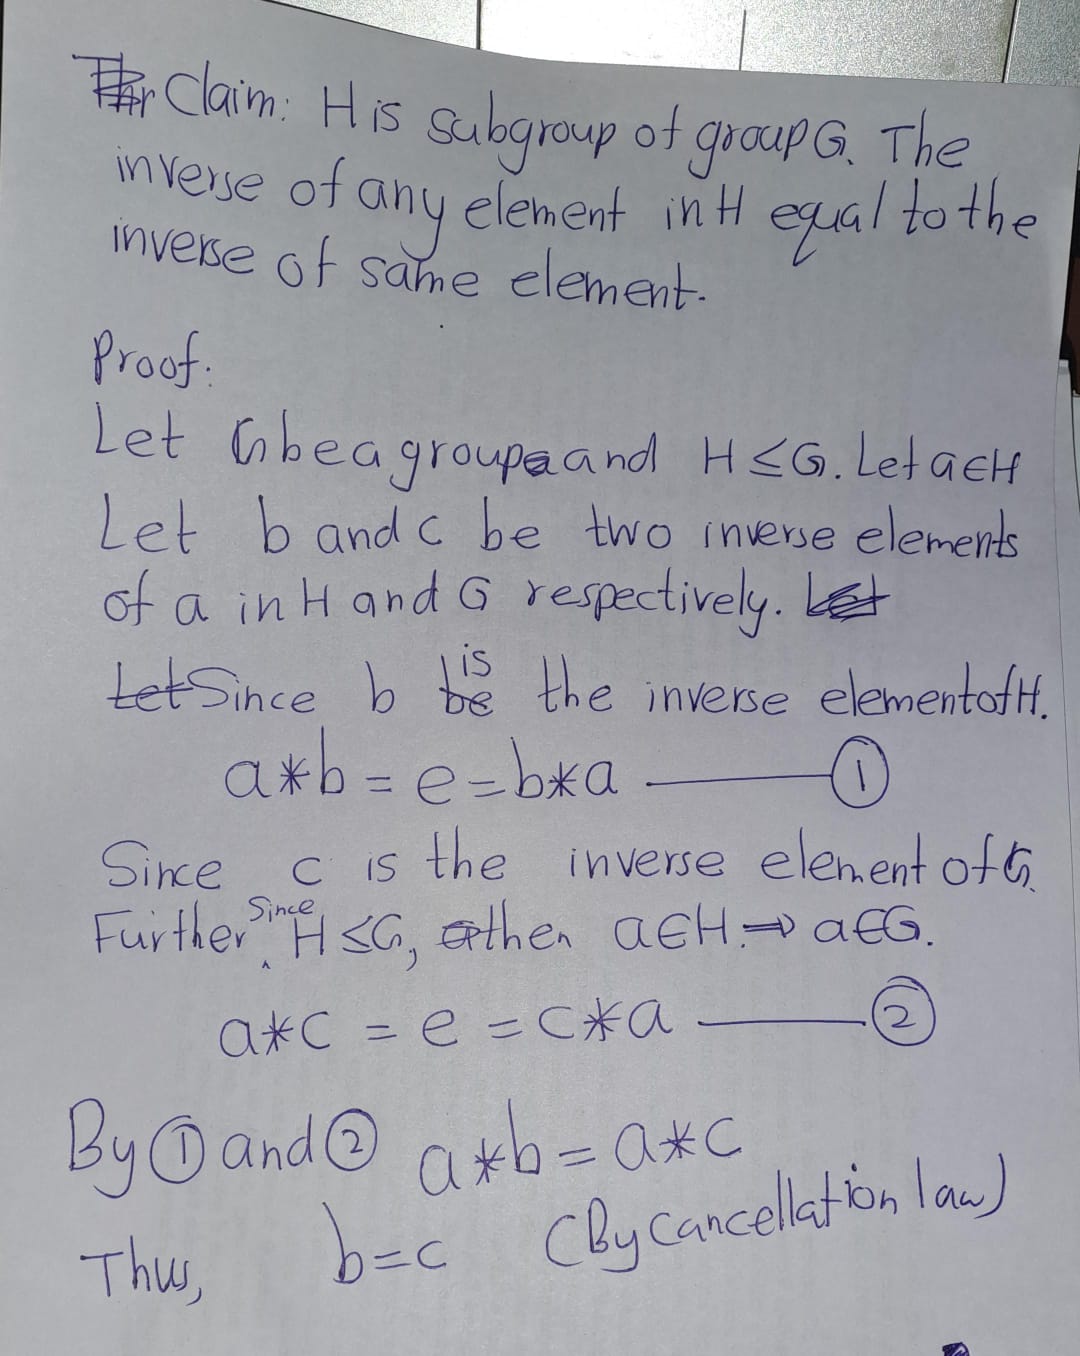 Claim: H is subgroup of group G. The
inverse of any element in H equal to the
inverse of same element.
Proof:
Let G be a group and H ≤ G. Let a ∈ H
Let b and c be two inverse elements
of a in H and G respectively. Let
Let Since b be is the inverse element of H.
a * b = e = b * a ——— ①
Since c is the inverse element of G.
Further, Since H ≤ G, then a ∈ H. ⇒ a ∈ G.
a * c = e = c * a ——— ②
By ① and ② a * b = a * c
Thus, b = c (By Cancellation law)